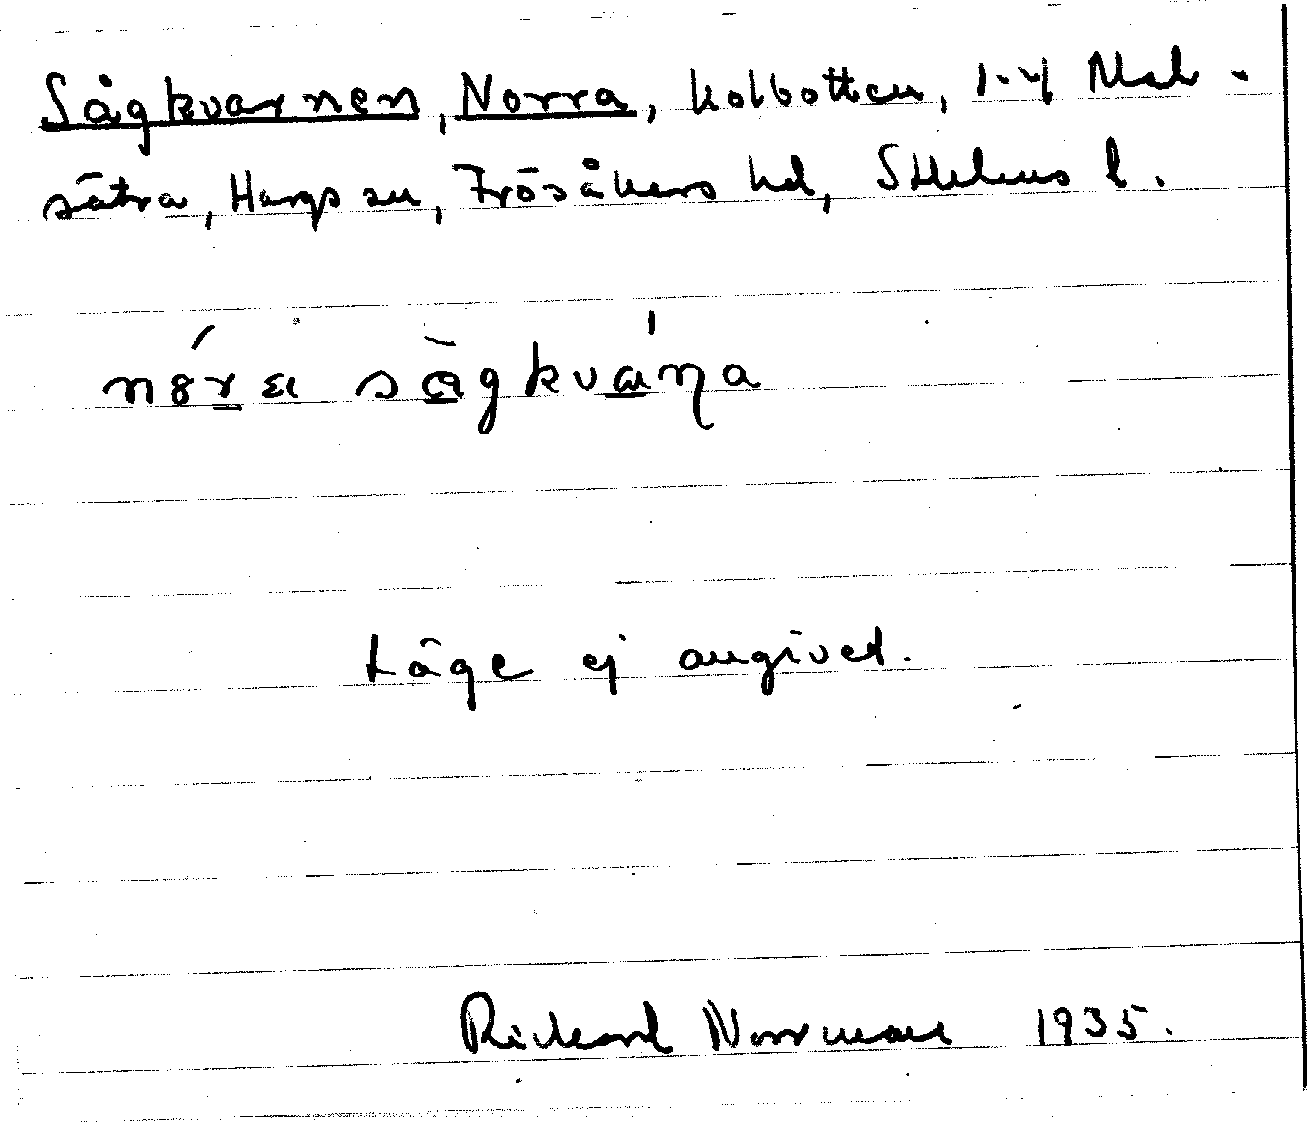 Sågkvarnen, Norra, kolbotten, 1-4 Mal-
sätra, Hargs sn, Frösåkers hd, Sthlms l.
Läge ej angivet.
Rickard Norrman 1935.